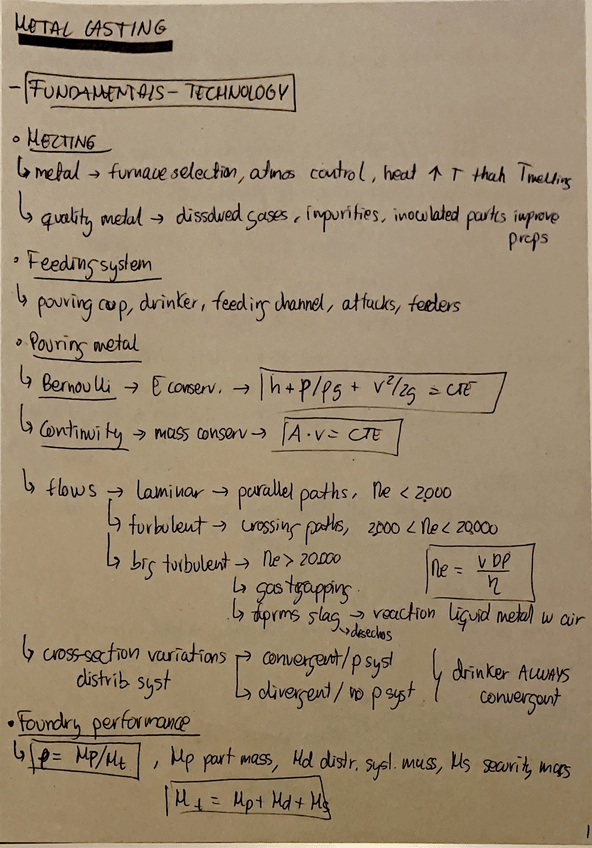 METAL CASTING
- FUNDAMENTALS - TECHNOLOGY
• MELTING
↳ metal → furnace selection, atmos control, heat ↑ T than Tmelting
↳ quality metal → dissolved gases, impurities, inoculated partcs improve
props
• Feeding system
↳ pouring cup, drinker, feeding channel, attacks, feeders
• Pouring metal
↳ Bernoulli → E conserv. → h + P/ρg + v²/2g = CTE
↳ Continuity → mass conserv → A · v = CTE
↳ flows → laminar → parallel paths, Re < 2,000
↳ turbulent → crossing paths, 2,000 < Re < 20,000
↳ big turbulent → Re > 20.000
Re = vDρ/η
↳ gas trapping
↳ forms slag → reaction liquid metal w air
↳ desechos
↳ cross-section variations → convergent / p syst
distrib syst ↳ divergent / no p syst
drinker ALWAYS
convergent
• Foundry performance
↳ ρ = Mp/Mt , Mp part mass, Md distr. syst. mass, Ms security mass
Mt = Mp + Md + Ms
1